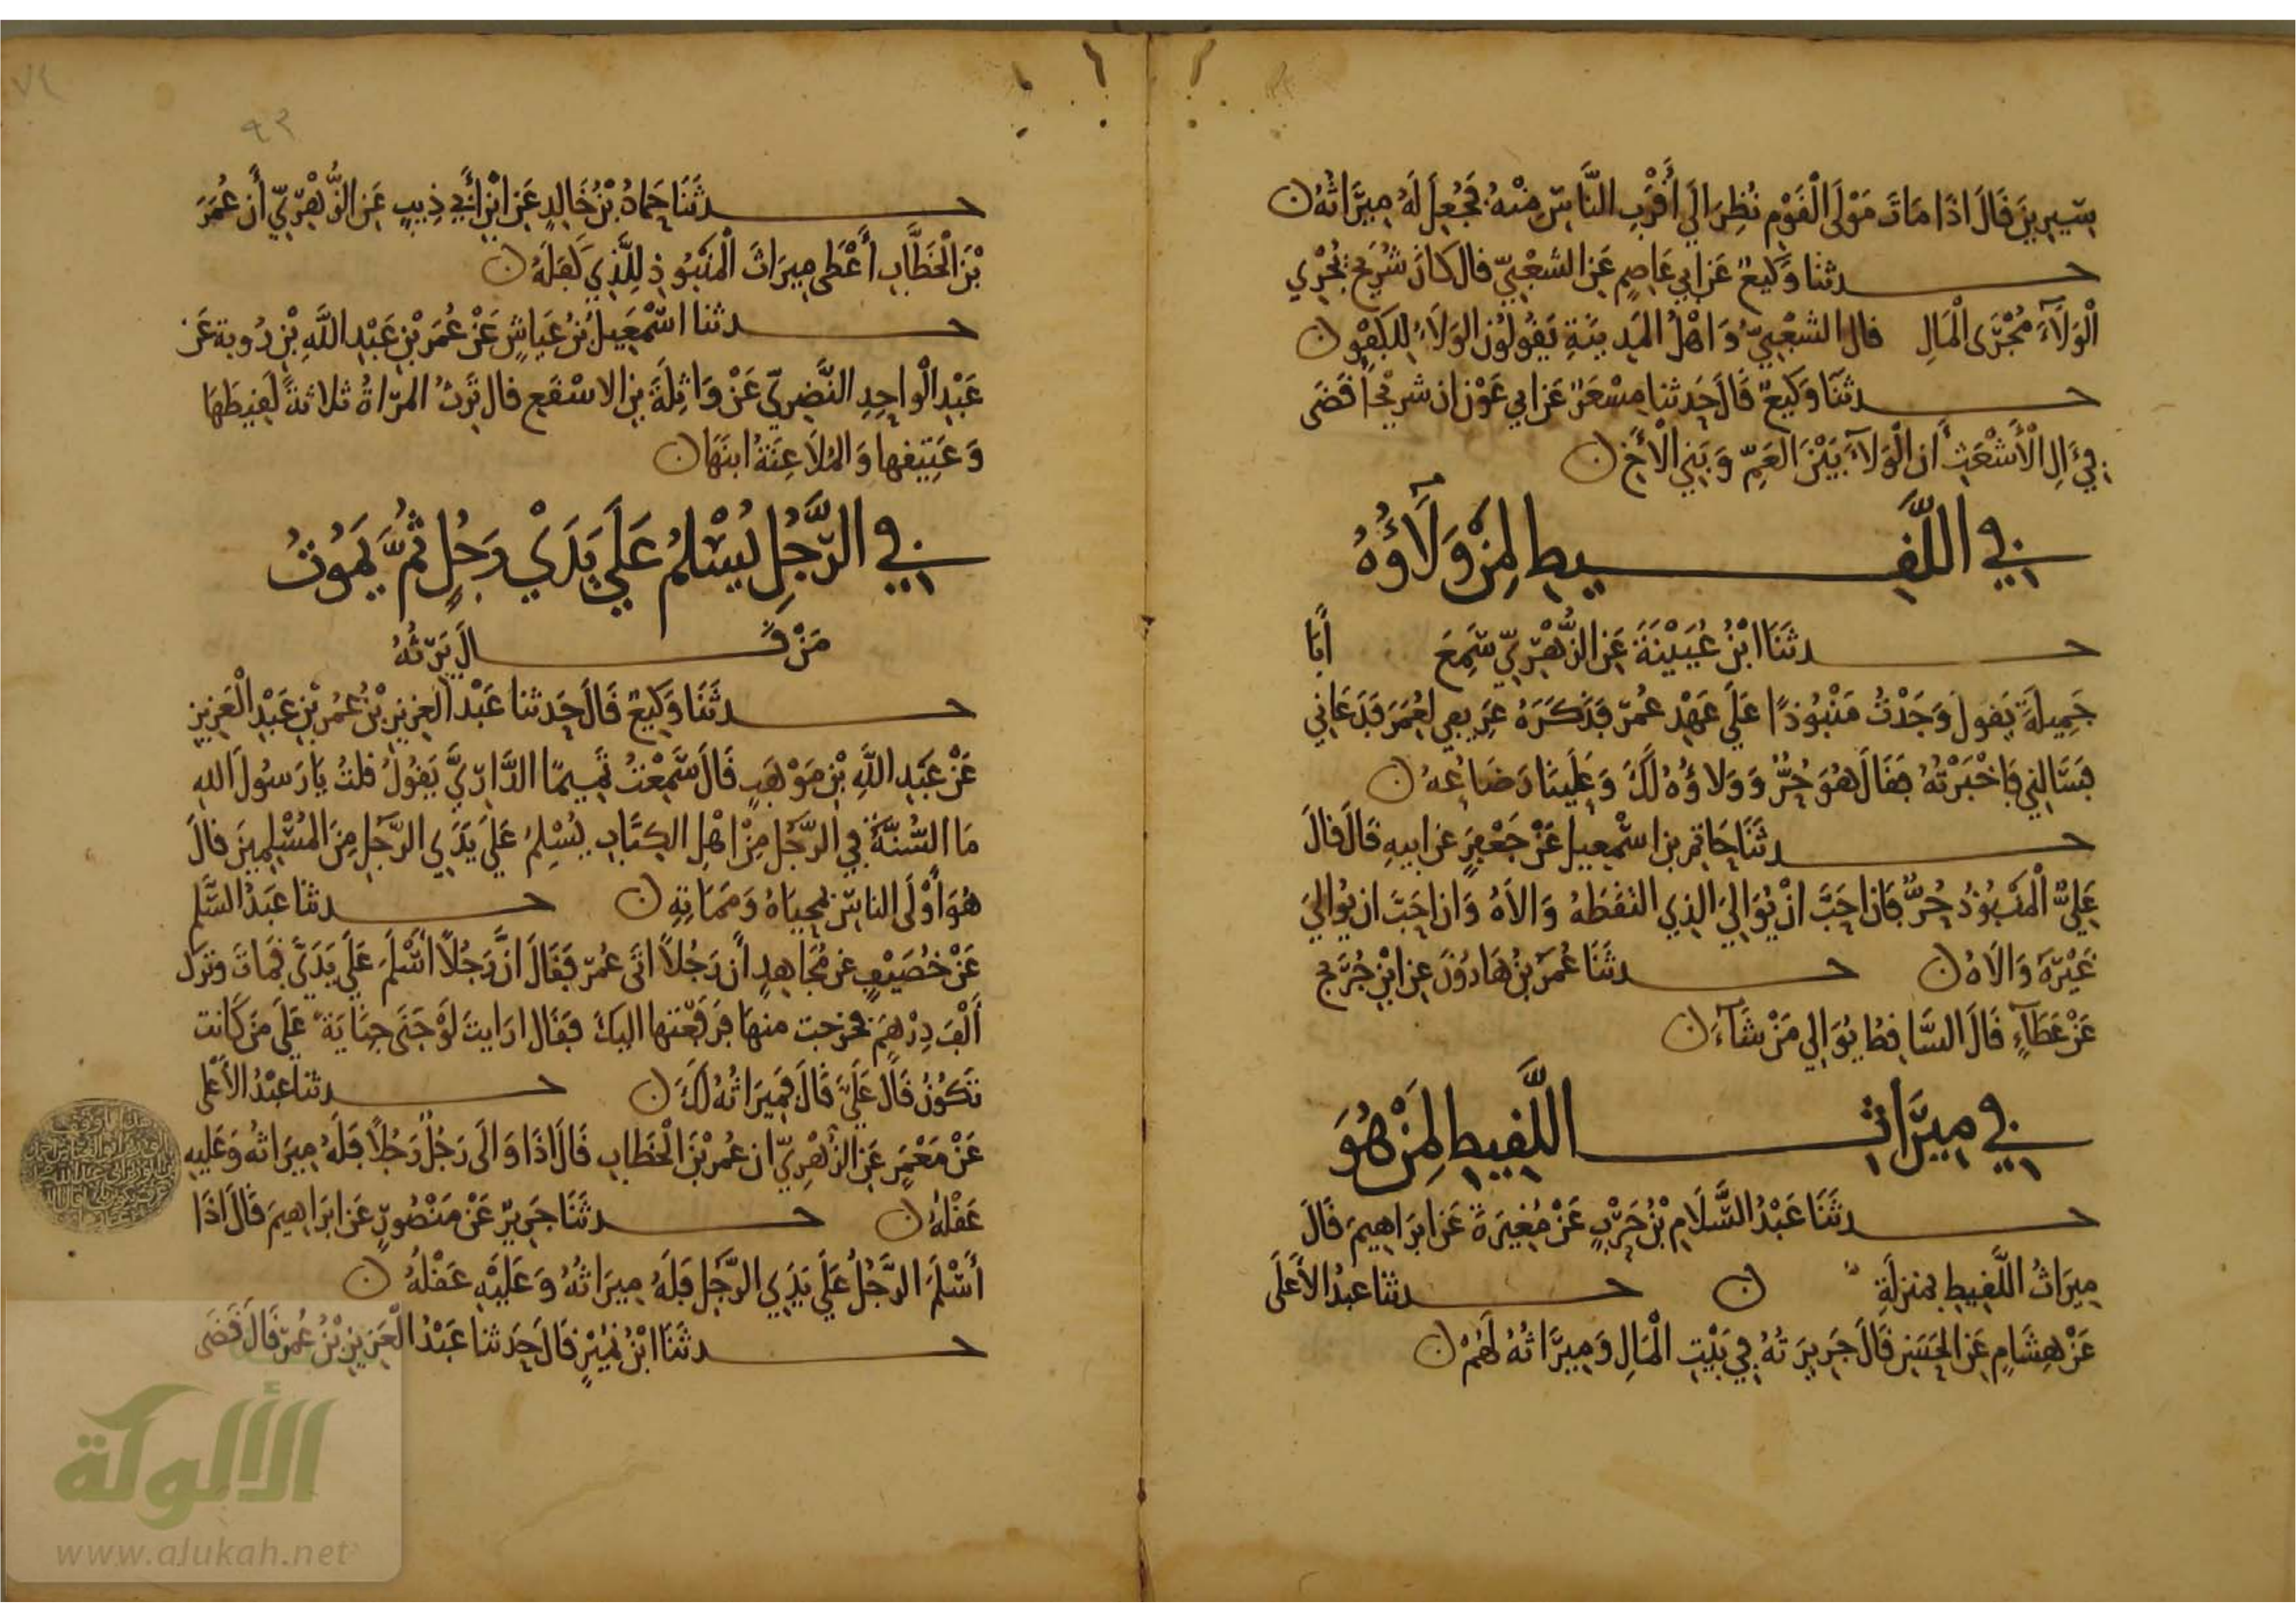 سِيرِينَ قَالَ اذَا مَاتَ مَوْلَى الْقَوْمِ نُظِرَ الَى أَقْرَبِ النَّاسِ مِنْهُ فَجُعِلَ لَهُ مِيرَاثُهُ ن
حدثنا وَكِيعٌ عَن ابي عَاصِمٍ عَن الشَّعْبِيّ قال كانَ شُرَيْحٌ يُجْرِي
الْوَلَآءَ مُجْرَى الْمَالِ قال الشعْبِيّ وَاهْلُ المَدِينَةِ يَقُولُونَ الوَلَاءُ لِلكَبِيرِ ن
حدثنَا وَكِيعٌ قَالَ حَدثنا مِسْعَرٌ عَن ابي عَوْن ان شريحًا قَضَى
فِي آلِ الْأَشْعَثِ أَن الْوَلَآءَ بَيْنَ العَمّ وَبَنِي الْأَخِ ن
في اللَّقِيطِ لِمَنْ وَلَآؤُهُ
حدثَنَا ابْنُ عُيَيْنَةَ عَنِ الزُّهْرِيِّ سَمِعَ أَبَا
جَمِيلَةَ يَقولُ وَجَدْتُ مَنْبُوذًا عَلَى عَهْدِ عُمَرَ فَذَكَرَهُ عَرِيفِي لِعُمَرَ فَدَعَانِي
فَسَالَنِي فَاخْبَرْتُهُ فَقَالَ هُوَ حُرٌّ وَوَلاؤُهُ لَكَ وَعَلَيْنَا رَضَاعُهُ ن
حدثَنَا حَاتِمُ بن اسْمعِيل عَنْ جَعْفَرٍ عن ابيهِ قَالَ قالَ
عَلِيٌّ الْمَنْبُوذُ حُرٌّ فَان احَبَّ انْ يُوَالِيَ الذِي التَقَطَهُ وَالاَهُ وَان احَبَّ ان يُوَالِيَ
غَيْرَهُ وَالَاهُ ن حدثَنَا عُمَرُ بْنُ هَارُونَ عن ابْنِ جُرَيْجٍ
عَنْ عَطَآءٍ قَالَ السَّاقِطُ يُوَالِي مَنْ شَآءَ ن
في مِيرَاثِ اللَّقِيطِ لِمَنْ هُوَ
حدثَنَا عَبْدُ السَّلَامِ بْنُ حَرْبٍ عَنْ مُغِيرَةَ عَن ابرَاهِيمَ قَالَ
مِيرَاثُ اللَّقِيطِ بمنزلَةِ ن حدثنا عبدُ الأعلَى
عَنْ هِشَامٍ عَن الحَسَنِ قَالَ جَرِيرَتُهُ فِي بَيْتِ الْمَالِ وَمِيرَاثُهُ لَهُمْ ن
٩٢
حدثَنَا حَمادُ بْنُ خَالِدٍ عَنِ ابْنِ أَبِي ذِيبٍ عَنِ الزُّهْرِيِّ أَن عُمَرَ
بْنَ الْخَطَّابِ أَعْطَى مِيرَاثَ الْمَنْبُوذِ لِلَّذِي كَفَلَهُ ن
حدثنا اسْمَعِيلُ بْنُ عَيَاشٍ عَنْ عُمَرَ بْنِ عَبْدِ اللَّهِ بْنِ رُوبة عَن
عَبْدِ الْوَاحِدِ النَّضرِيّ عَنْ وَاثِلَةَ بنِ الاسْقَعِ قال تَرِثُ المرَاةُ ثلاثَةً لَقِيطَهَا
وَعَتِيقَها وَالمُلَاعِنَةُ ابنَهَا ن
في الرَّجُلِ يُسْلِمُ عَلَى يَدَيْ رَجُلٍ ثُمَّ يَمُوتُ
مَنْ قَالَ يَرِثُهُ
حدثَنَا وَكِيعٌ قَالَ حَدثنا عَبْد العزيز بْنُ عُمَر بْنِ عَبْدِ الْعَزِيزِ
عَنْ عَبْدِ اللَّهِ بْنِ مَوْهَبٍ قَالَ سَمِعْتُ تَمِيمًا الدَّارِيَّ يَقُولُ قلتُ يَا رَسُولَ اللهِ
مَا السُّنَّةُ فِي الرَّجُلِ مِنْ اهْلِ الكِتَابِ يُسْلِمُ عَلَى يَدَيِ الرَّجُلِ مِنَ المُسْلِمِينَ قَالَ
هُوَ أَوْلَى الناسِ بِمَحْيَاهُ وَمَمَاتِهِ ن حدثنا عَبْدُ السَّلمِ
عَنْ خُصَيْفٍ عَن مُجَاهِدٍ أَن رَجُلاً اتَى عُمَرَ فَقَالَ انَّ رَجُلاً اسْلَمَ عَلَى يَدَيَّ فَمَاتَ وتَرَكَ
أَلْفَ دِرْهَمٍ فتحرجت منهَا فرفعتها اليكَ فَقَالَ ارَايتَ لَوْ جَنَى جِنَايَةً عَلَى مَن كَانت
تَكُونُ قَالَ عَلَيَّ قَالَ فَمِيرَاثُهُ لَكَ ن حدثنا عَبْدُ الأعْلَى
عَنْ مَعْمَرٍ عَنِ الزُّهْرِيّ ان عُمَر بْنَ الْخَطابِ قَالَ اذَا وَالَى رَجُلٌ رَجُلاً فَلَهُ مِيرَاثُهُ وَعَلَيهِ
عَقْلُهُ ن حدثَنَا جَرِيرٌ عَنْ مَنْصُورٍ عَن ابرَاهِيمَ قَالَ اذَا
أَسْلَمَ الرَّجُلُ عَلَى يَدَيِ الرَّجُلِ فَلَهُ مِيرَاثُهُ وَعَلَيْهِ عَقْلُهُ ن
حدثَنَا ابْنُ نُمَيْرٍ قَالَ حَدثنا عَبْدُ الْعَزِيزِ بْنُ عُمَرَ قَالَ قَضَى
الألوكة
www.alukah.net